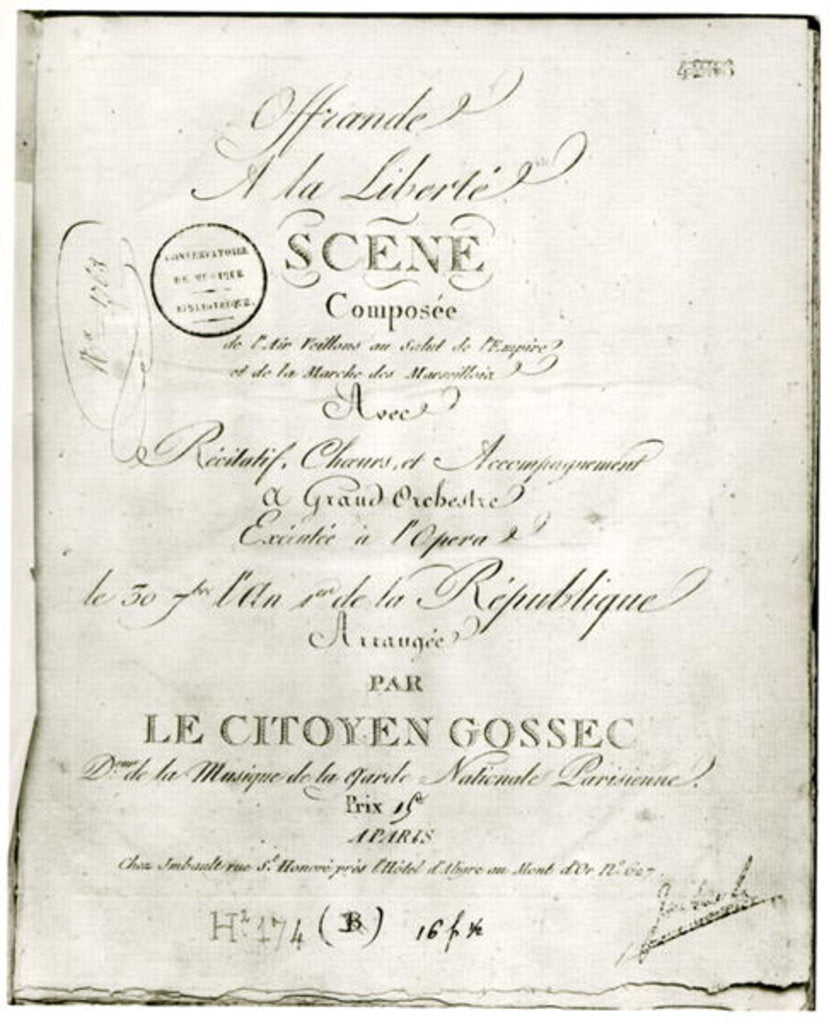 Offrande
A la Liberté
SCENE
Composée
de l'Air Veillons au Salut de l'Empire
et de la Marche des Marseillois
Avec
Récitatif, Chœurs, et Accompagnement
a Grand Orchestre
Exécutée à l'Opera
le 30 7bre l'An 1er de la République
Arrangée
PAR
LE CITOYEN GOSSEC
de la Musique de la Garde Nationale Parisienne.
Prix
A PARIS
Chez Imbault rue St Honoré près l'Hôtel d'Aligre au Mont d'Or No. 627
CONSERVATOIRE
DE MUSIQUE
BIBLIOTHEQUE.
H2. 174 (B) 16 f. ½